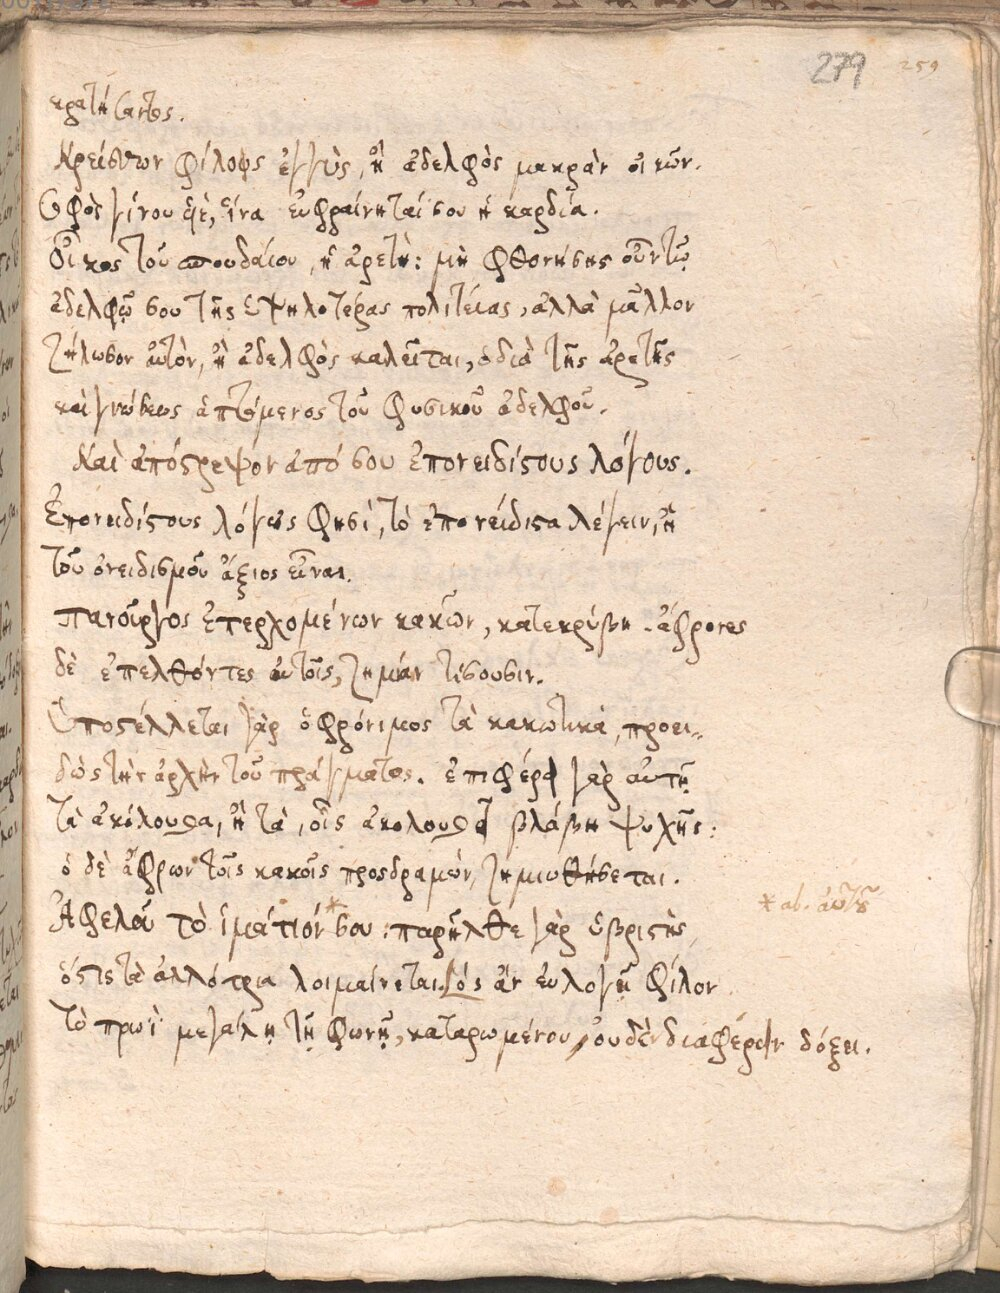 279 259
κρατήσαντος.
Κρείσσων φίλος ἐγγὺς, ἢ ἀδελφὸς μακρὰν οἰκῶν.
Σοφὸς γίνου υἱὲ, ἵνα εὐφραίνηταί σου ἡ καρδία.
Οἶκος τοῦ σπουδαίου, ἡ ἀρετή: μὴ φθονήσῃς οὖν τῷ
ἀδελφῷ σου τῆς ὑψηλοτέρας πολιτείας, ἀλλὰ μᾶλλον
ζήλωσον αὐτὸν, ἢ ἀδελφὸς καλεῖται, ὁ διὰ τῆς ἀρετῆς
καὶ γνώσεως ἁπτόμενος τοῦ φυσικοῦ ἀδελφοῦ.
Καὶ ἀπόστρεψον ἀπό σου ἐπονειδίστους λόγους.
Ἐπονειδίστους λόγους φησὶ, τὸ ἐπονείδιστα λέγειν, ἢ
τοῦ ὀνειδισμοῦ ἄξιος εἶναι.
πανοῦργος ἐπερχομένων κακῶν, κατεκρύβη. ἄφρονες
δὲ ἐπελθόντες αὐτοῖς, ζημίαν τίσουσιν.
Ὑποστέλλεται γὰρ ὁ φρόνιμος τὰ κακωτικὰ, προει-
δὼς τὴν ἀρχὴν τοῦ πράγματος. ἐπιφέρει γὰρ αὐτῇ
τὰ ἀκόλουθα, ἢ τὰ, οἷς ἀκολουθεῖ βλάβη ψυχῆς:
ὁ δὲ ἄφρων τοῖς κακοῖς προσδραμών, ζημιωθήσεται.
Ἀφελοῦ τὸ ἱμάτιόν* σου: παρῆλθε γὰρ ὑβριστὴς,
* al. αὐτοῦ
ὅστις τὰ ἀλλότρια λοιμαίνεται. Ὃς ἂν εὐλογῇ φίλον
τὸ πρωῒ μεγάλῃ τῇ φωνῇ, καταρωμένου, οὐδὲν διαφέρειν δόξει.